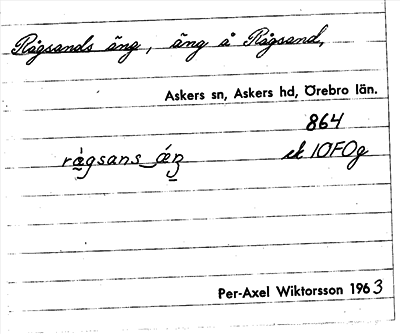 Rågsands äng, äng å Rågsand,
Askers sn, Askers hd, Örebro län.
864
ek 10F0g
Per-Axel Wiktorsson 1963